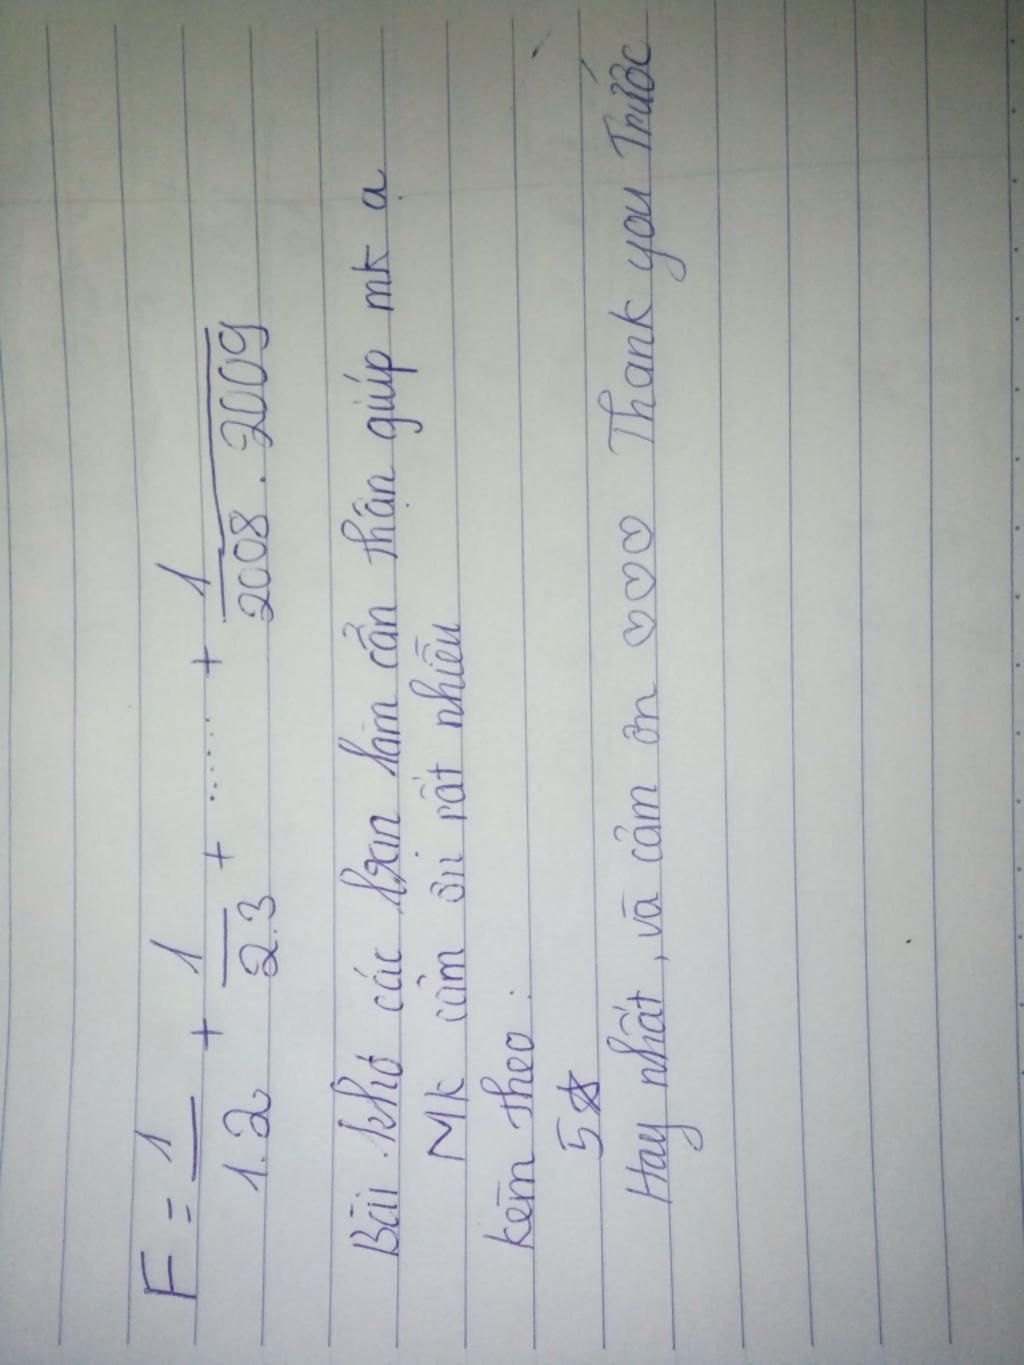 F = 1/1.2 + 1/2.3 + ..... + 1/2008.2009
Bài khó các bạn làm cẩn thận giúp mk ạ
Mk cảm ơn rất nhiều
kèm theo:
5☆
Hay nhất, và cảm ơn ♡♡♡ Thank you Trước